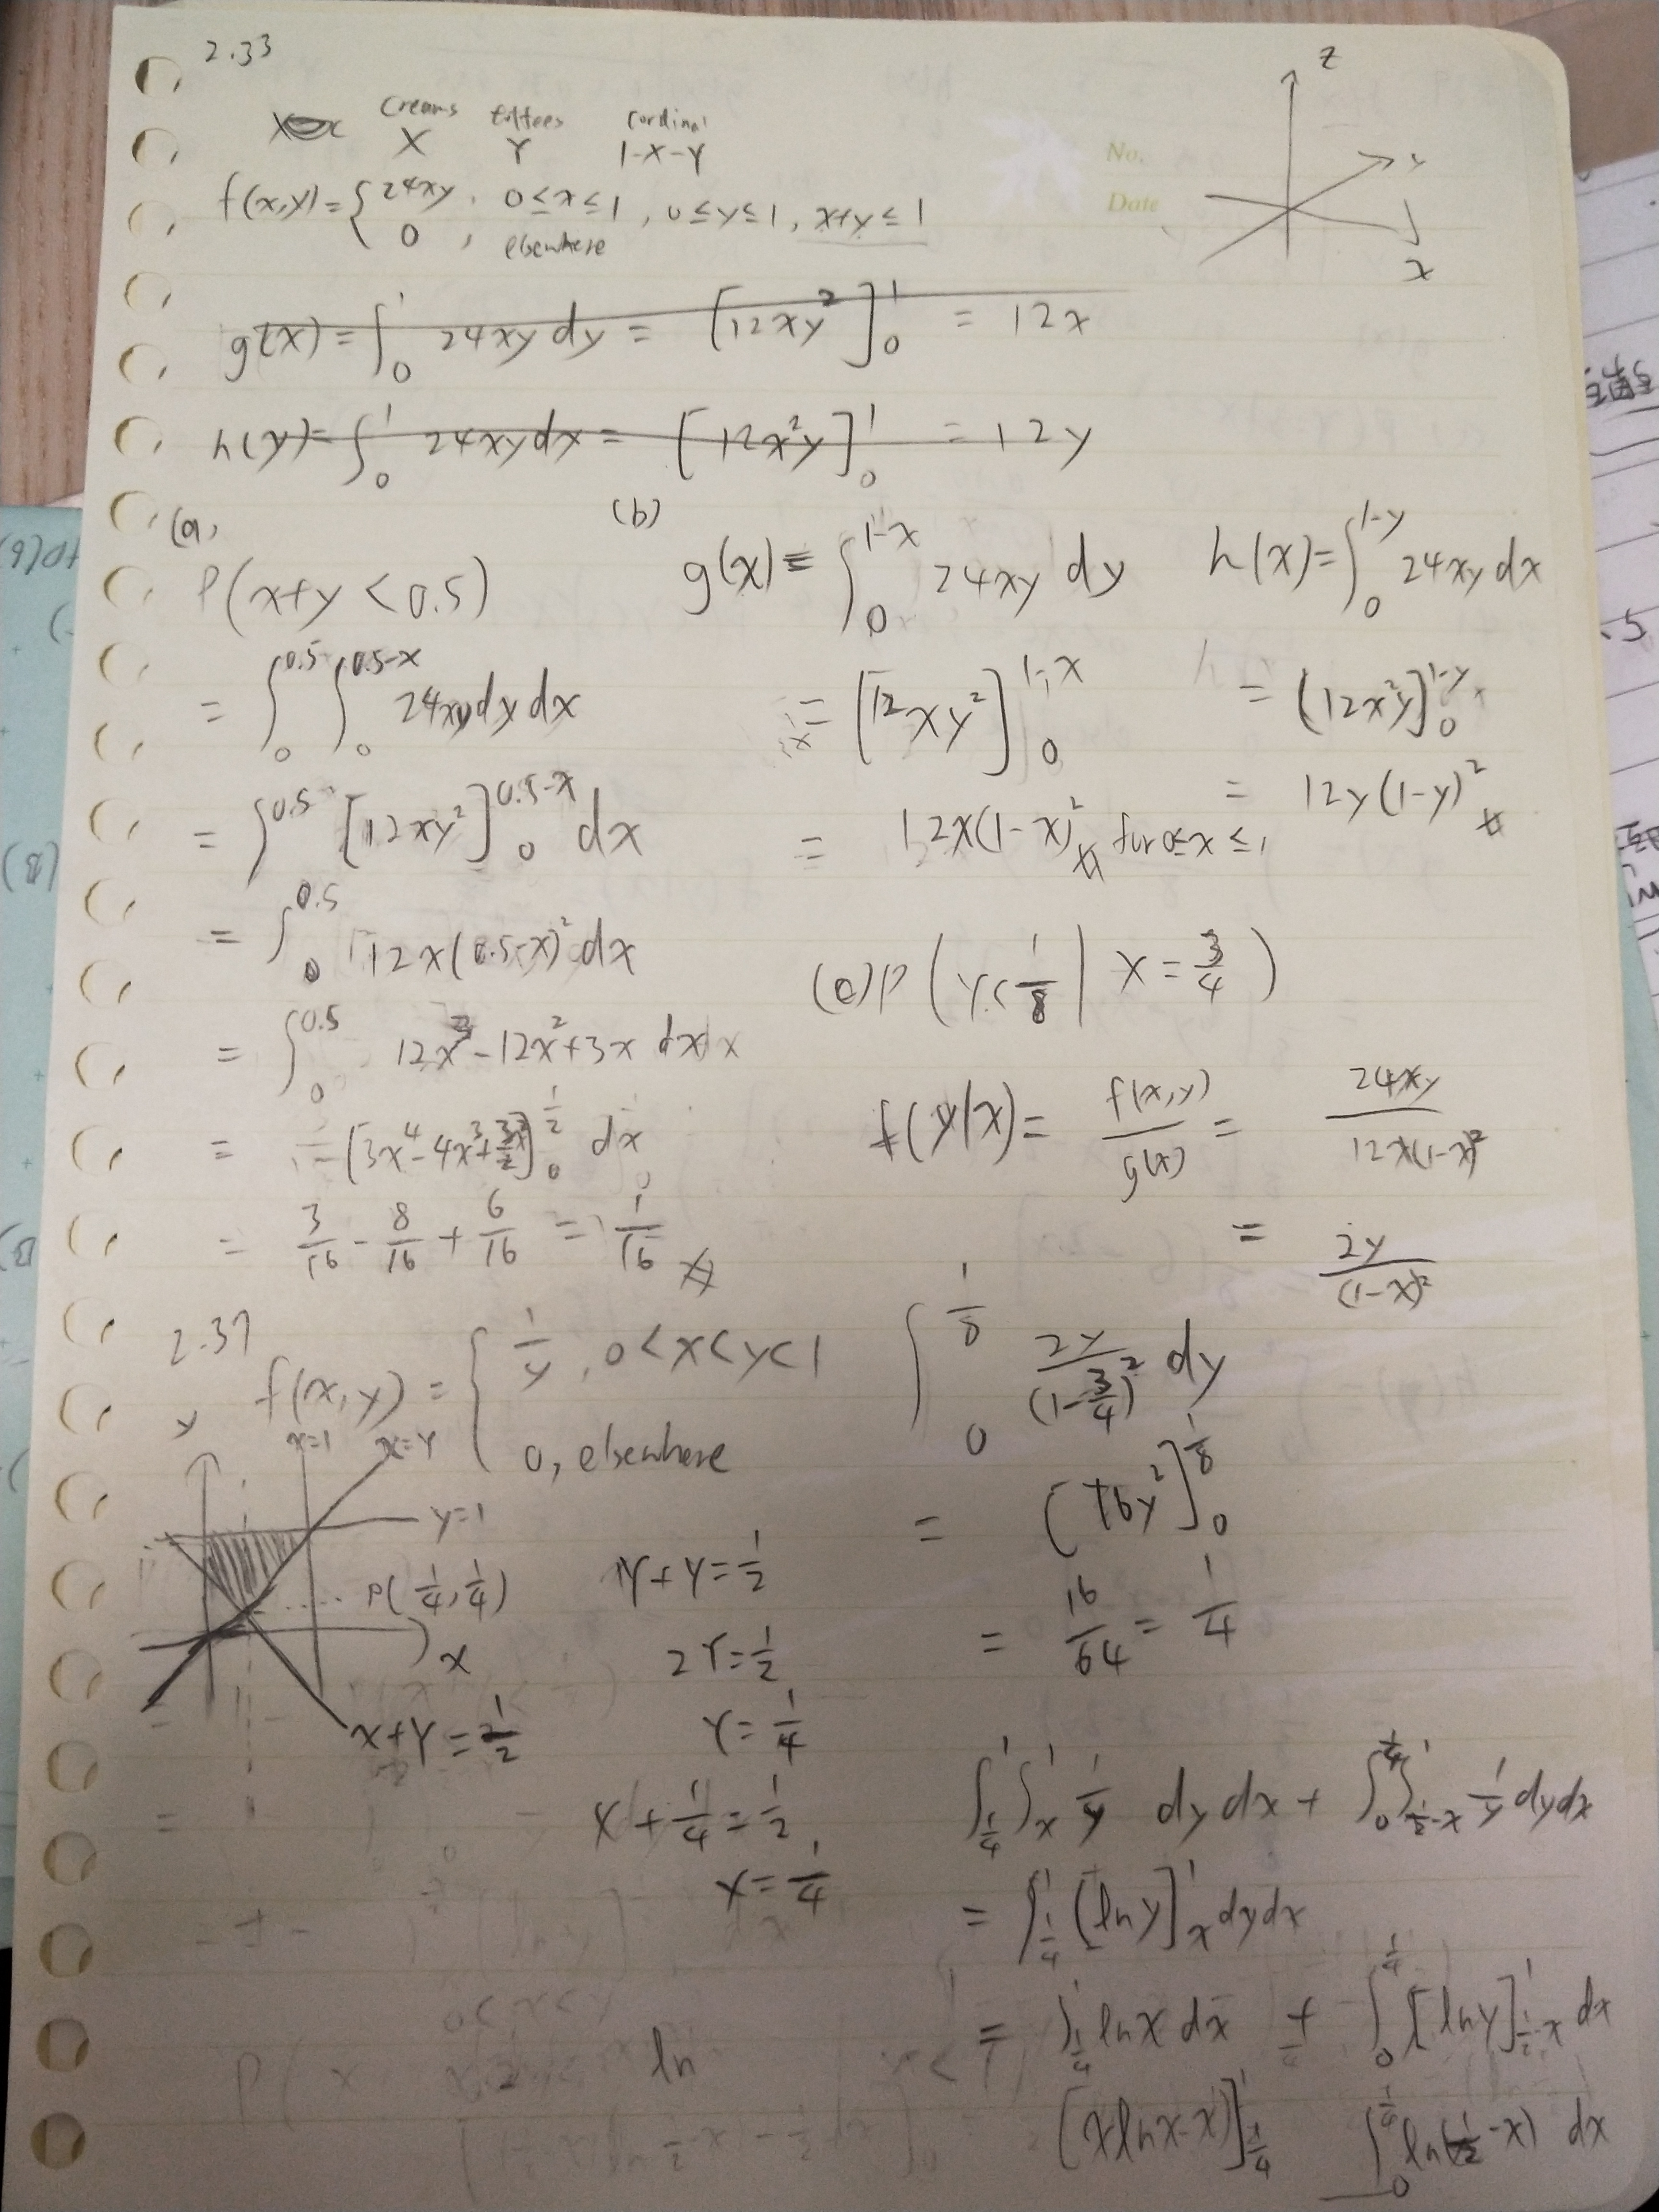 2.33
z
creams toffees cordial
X Y 1-X-Y
No.
Date
y
x
f(x,y)={24xy, 0≤x≤1, 0≤y≤1, x+y≤1
0, elsewhere
g(x)=∫₀¹ 24xy dy = [12xy²]₀¹ = 12x
h(y)=∫₀¹ 24xy dx = [12x²y]₀¹ = 12y
(a)
P(x+y<0.5)
= ∫₀^0.5 ∫₀^(0.5-x) 24xy dy dx
= ∫^0.5 [12xy²]₀^(0.5-x) dx
= ∫₀^0.5 12x(0.5-x)² dx
= ∫₀^0.5 12x³-12x²+3x dx
= [3x⁴-4x³+3x²/2]₀^(1/2) dx
= 3/16 - 8/16 + 6/16 = 1/16
(b)
g(x) = ∫₀^(1-x) 24xy dy
= [12xy²]₀^(1-x)
= 12x(1-x)² for 0≤x≤1
h(x)=∫₀^(1-y) 24xy dx
= [12x²y]₀^(1-y)
= 12y(1-y)²
(c) P(y<1/8 | x=3/4)
f(y|x)= f(x,y)/g(x) = 24xy/12x(1-x)²
= 2y/(1-x)²
∫₀^(1/8) 2y/(1-3/4)² dy
= [16y²]₀^(1/8)
= 16/64 = 1/4
2.37
f(x,y) = {1/y, 0<x<y<1
0, elsewhere
y
x=1 x=y
y=1
P(1/4,1/4)
x
x+y=1/2
y+y=1/2
2Y=1/2
Y=1/4
x+1/4=1/2
x=1/4
∫_(1/4)^1 ∫_x^1 1/y dy dx + ∫₀^(1/4) ∫_(1/2-x)^1 1/y dy dx
= ∫_(1/4)^1 [ln y]_x^1 dy dx
= ∫_(1/4)^1 ln x dx + ∫₀^(1/4) [ln y]_(1/2-x)^1 dx
ln
[x ln x-x]_(1/4)^1 ∫₀^(1/4) ln(1/2-x) dx